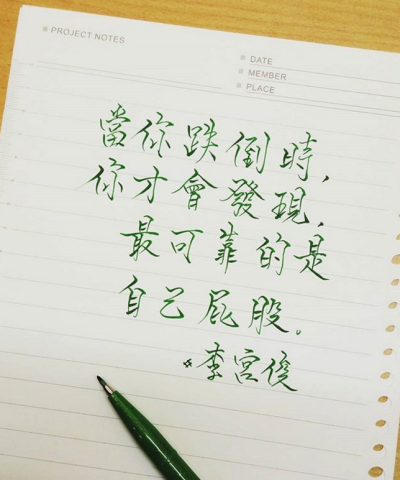 PROJECT NOTES
DATE
MEMBER
PLACE
當你跌倒時,
你才會發現,
最可靠的是
自己屁股。
李宮俊